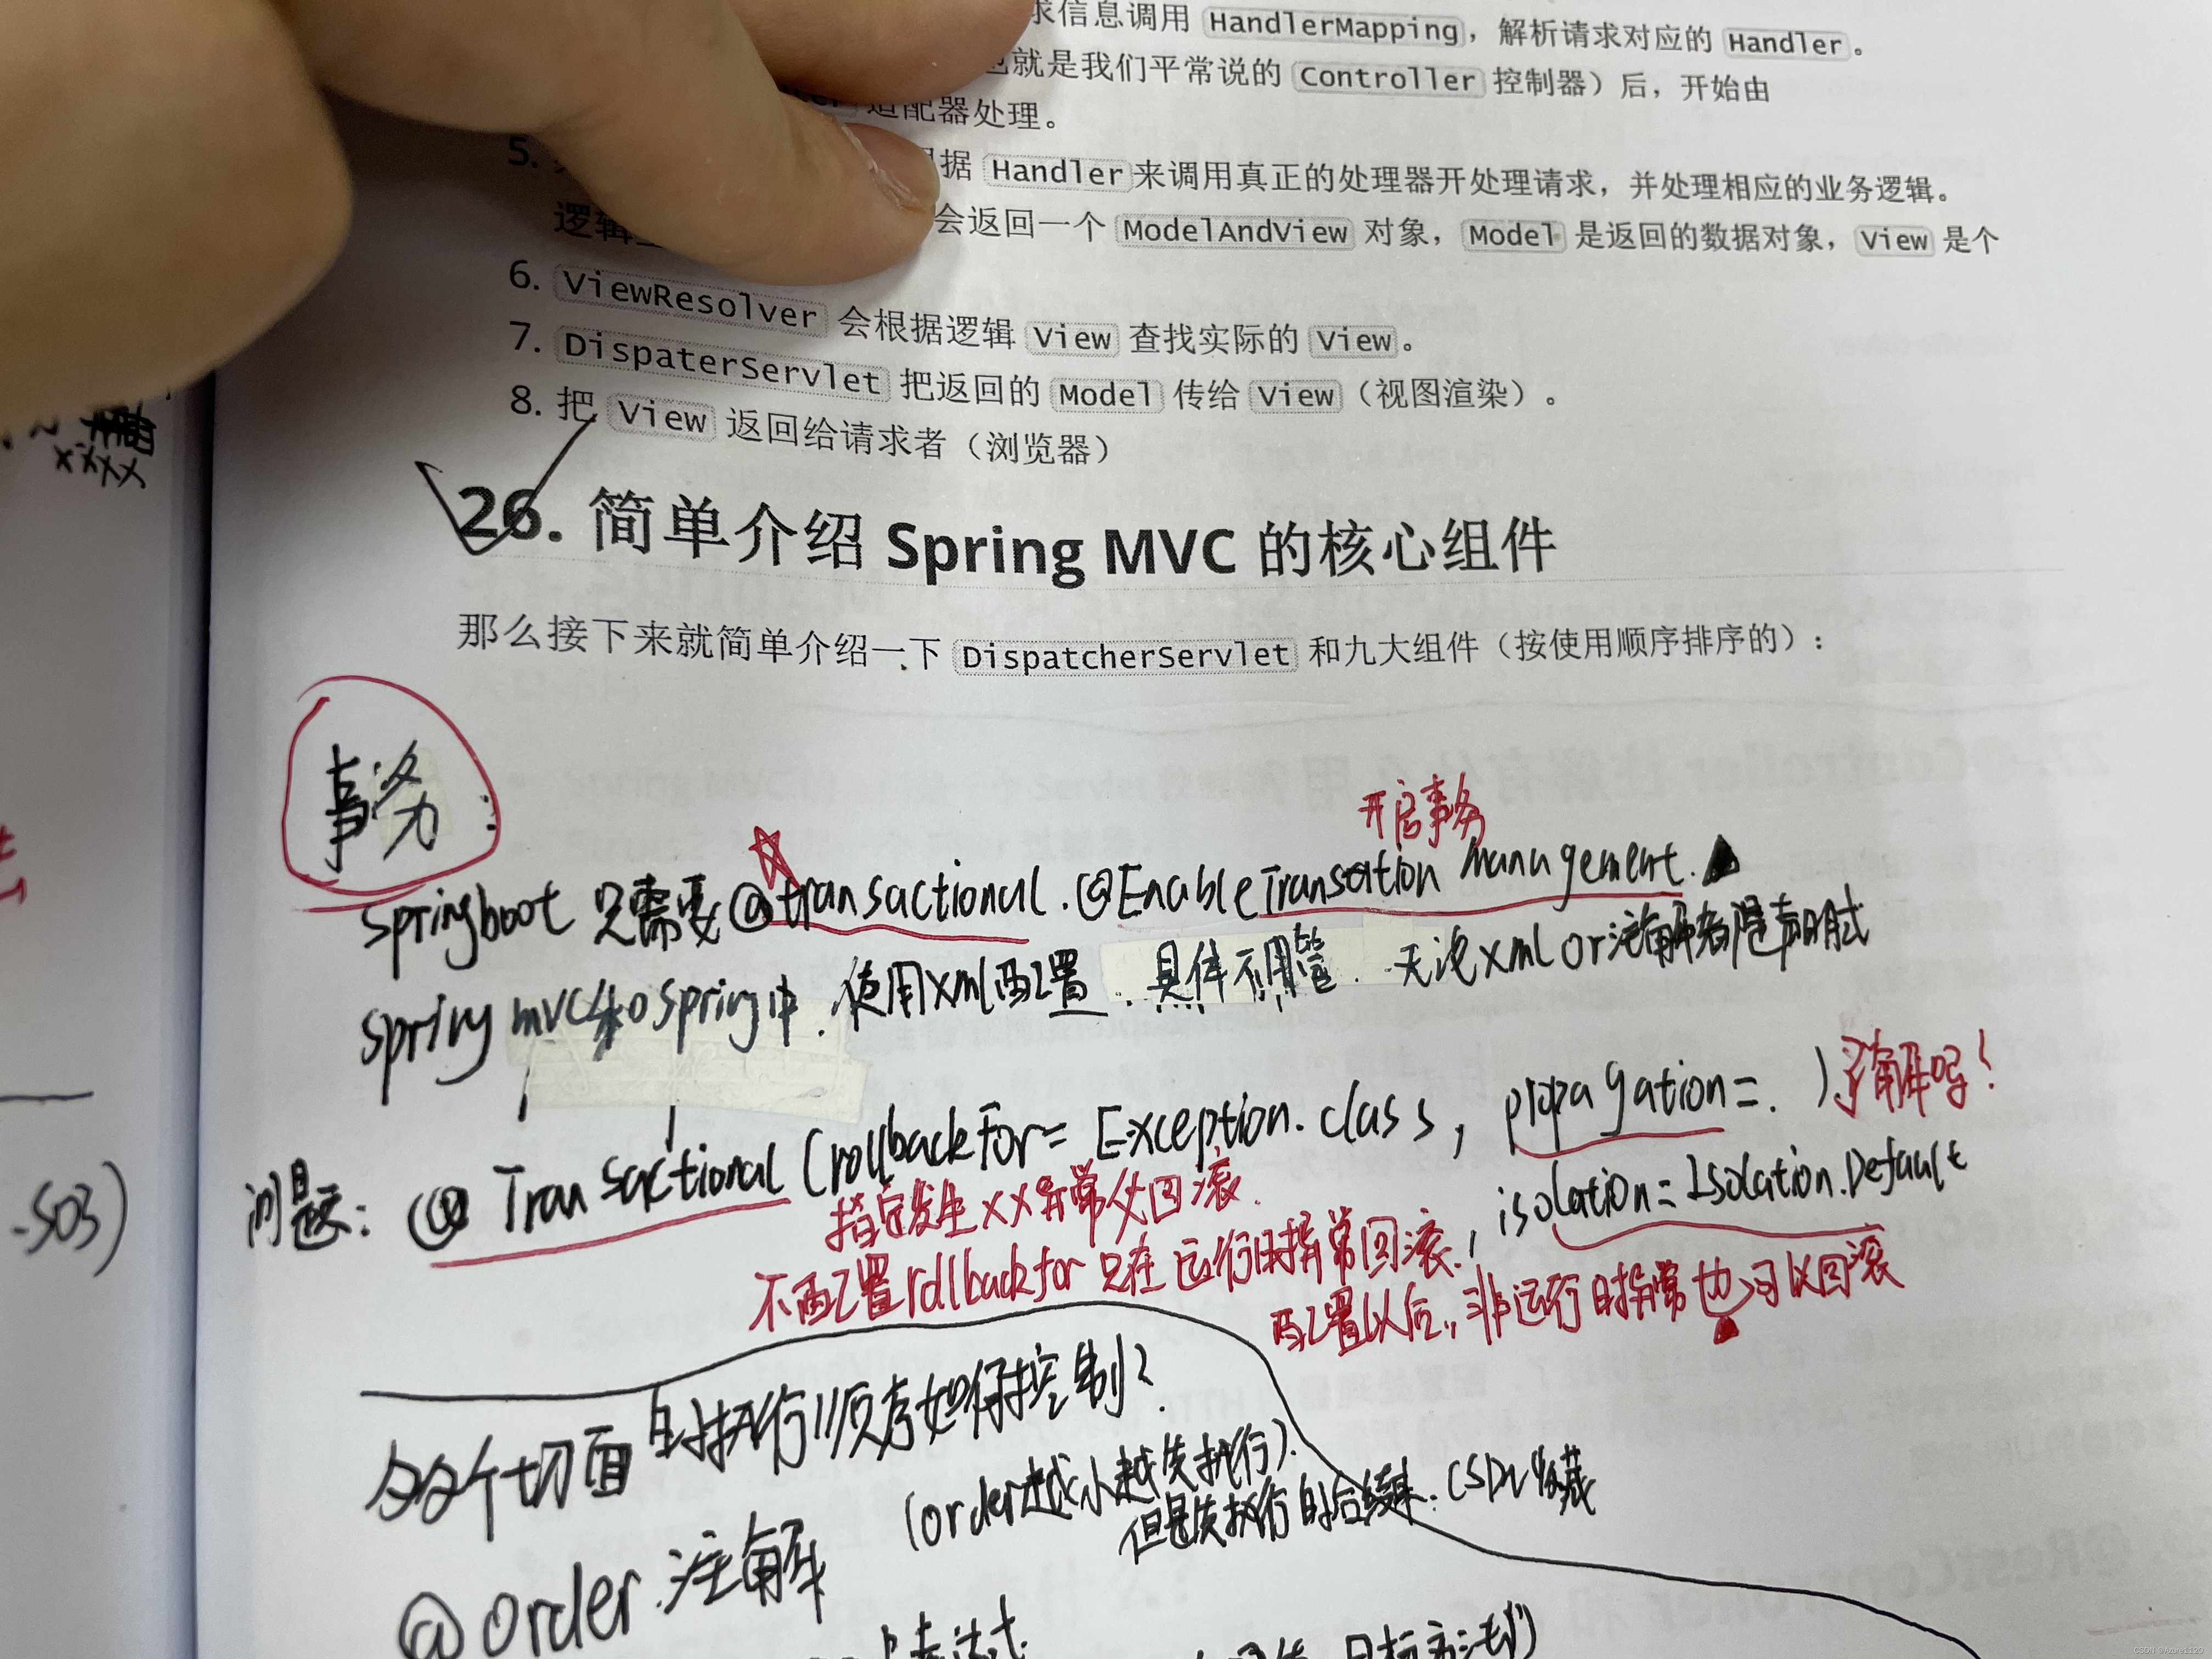 求信息调用 HandlerMapping，解析请求对应的 Handler。
也就是我们平常说的 Controller 控制器）后，开始由
适配器处理。
5.
根据 Handler来调用真正的处理器开处理请求，并处理相应的业务逻辑。
会返回一个 ModelAndView 对象，Model 是返回的数据对象，View 是个
逻辑
6. ViewResolver 会根据逻辑 View 查找实际的 View。
7. DispaterServlet 把返回的 Model 传给 View（视图渲染）。
8. 把 View 返回给请求者（浏览器）
26. 简单介绍 Spring MVC 的核心组件
那么接下来就简单介绍一下 DispatcherServlet 和九大组件（按使用顺序排序的）：
事务:
开启事务
springboot 只需要@transactional.@EnableTransation Management.
spring mvc和spring中.使用xml配置.具体不用管.无论xml or注解都是声明式
问题: @Transactional (rollbackFor= Exception.class, propagation=. ) 了解吗?
指定发生xx异常才回滚.
, isolation=Isolation.Default
不配置rollbackfor只在运行时异常回滚.
配置以后,非运行时异常也可以回滚
多个切面的执行顺序如何控制?
(order越小越先执行).
但是先执行的后结束. CSDN收藏
@order.注解
-S03)
表达式
目标方法的